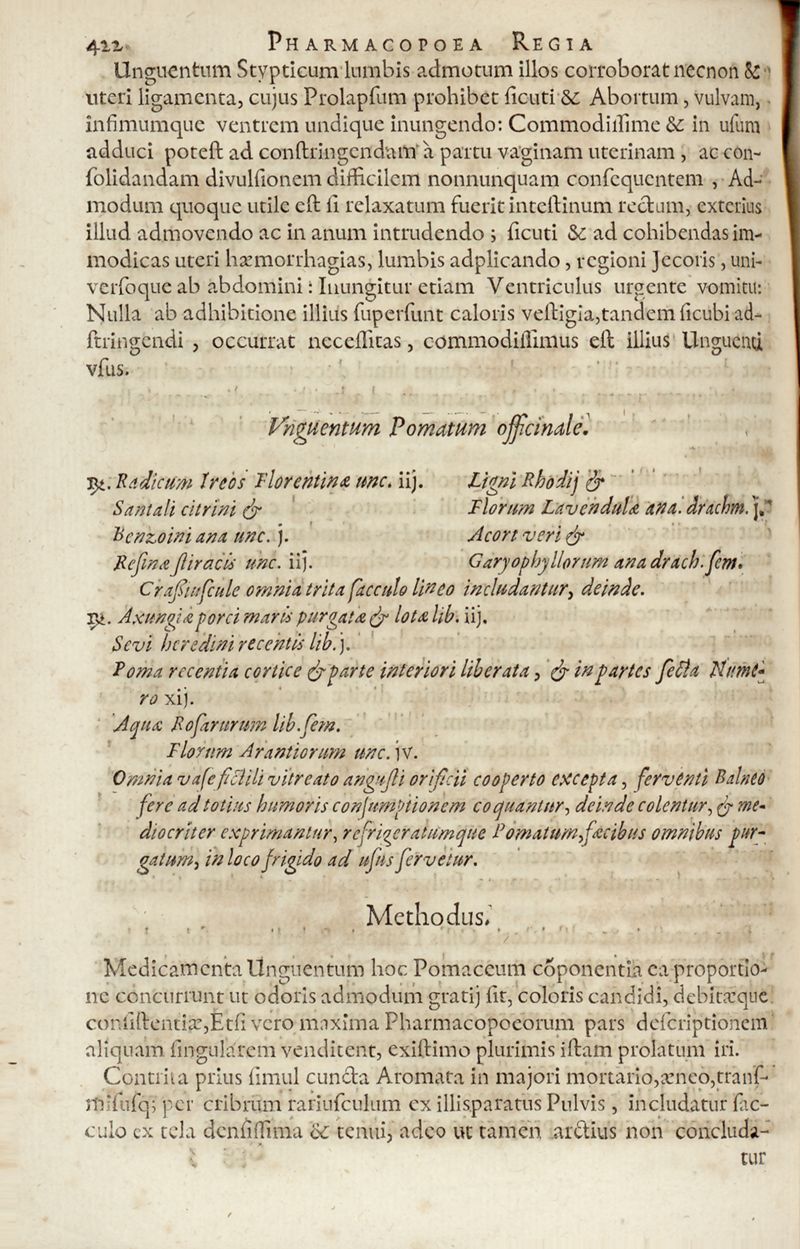 422 PHARMACOPOEA REGIA
Unguentum Stypticum lumbis admotum illos corroborat necnon &
uteri ligamenta, cujus Prolapſum prohibet ſicuti & Abortum, vulvam,
infimumque ventrem undique inungendo: Commodiſſime & in uſum
adduci poteſt ad conſtringendam à partu vaginam uterinam, ac con-
ſolidandam divulſionem difficilem nonnunquam conſequentem, Ad-
modum quoque utile eſt ſi relaxatum fuerit inteſtinum rectum, exterius
illud admovendo ac in anum intrudendo; ſicuti & ad cohibendas im-
modicas uteri hæmorrhagias, lumbis adplicando, regioni Jecoris, uni-
verſoque ab abdomini: Inungitur etiam Ventriculus urgente vomitu:
Nulla ab adhibitione illius ſuperſunt caloris veſtigia, tandem ſicubi ad-
ſtringendi, occurrat neceſſitas, commodiſſimus eſt illius Unguenti
vſus.
Vnguentum Pomatum officinale.
℞. Radicum Ireos Florentinæ unc. iij. Ligni Rhodij &
Santali citrini & Florum Lavendulæ ana. drachm. j.
Benzoini ana unc. j. Acori veri &
Reſinæ ſtiracis unc. iij. Garyophyllorum ana drach. ſem.
Craſſiuſcule omnia trita ſacculo lineo includantur, deinde.
℞. Axungiæ porci maris purgatæ & lotæ lib. iij.
Sevi hœredini recentis lib. j.
Poma recentia cortice & parte interiori liberata, & in partes ſecta Nume-
ro xij.
Aquæ Roſarurum lib. ſem.
Florum Arantiorum unc. jv.
Omnia vaſe fictili vitreato anguſti orificii cooperto excepta, ferventi Balneo
fere ad totius humoris conſumptionem coquantur, deinde colentur, & me-
diocriter exprimantur, refrigeratumque Pomatum, fæcibus omnibus pur-
gatum, in loco frigido ad uſus ſervetur.
Methodus.
Medicamenta Unguentum hoc Pomaceum cõponentia ea proportio-
ne concurrunt ut odoris admodum gratij ſit, coloris candidi, debitæque
conſiſtentiæ, Etſi vero maxima Pharmacopoeorum pars deſcriptionem
aliquam ſingularem venditent, exiſtimo plurimis iſtam prolatum iri.
Contrita prius ſimul cuncta Aromata in majori mortario, æneo, tranſ-
miſuſq; per cribrum rariuſculum ex illis paratus Pulvis, includatur ſac-
culo ex tela denſiſſima & tenui, adeo ut tamen arctius non concluda-
tur